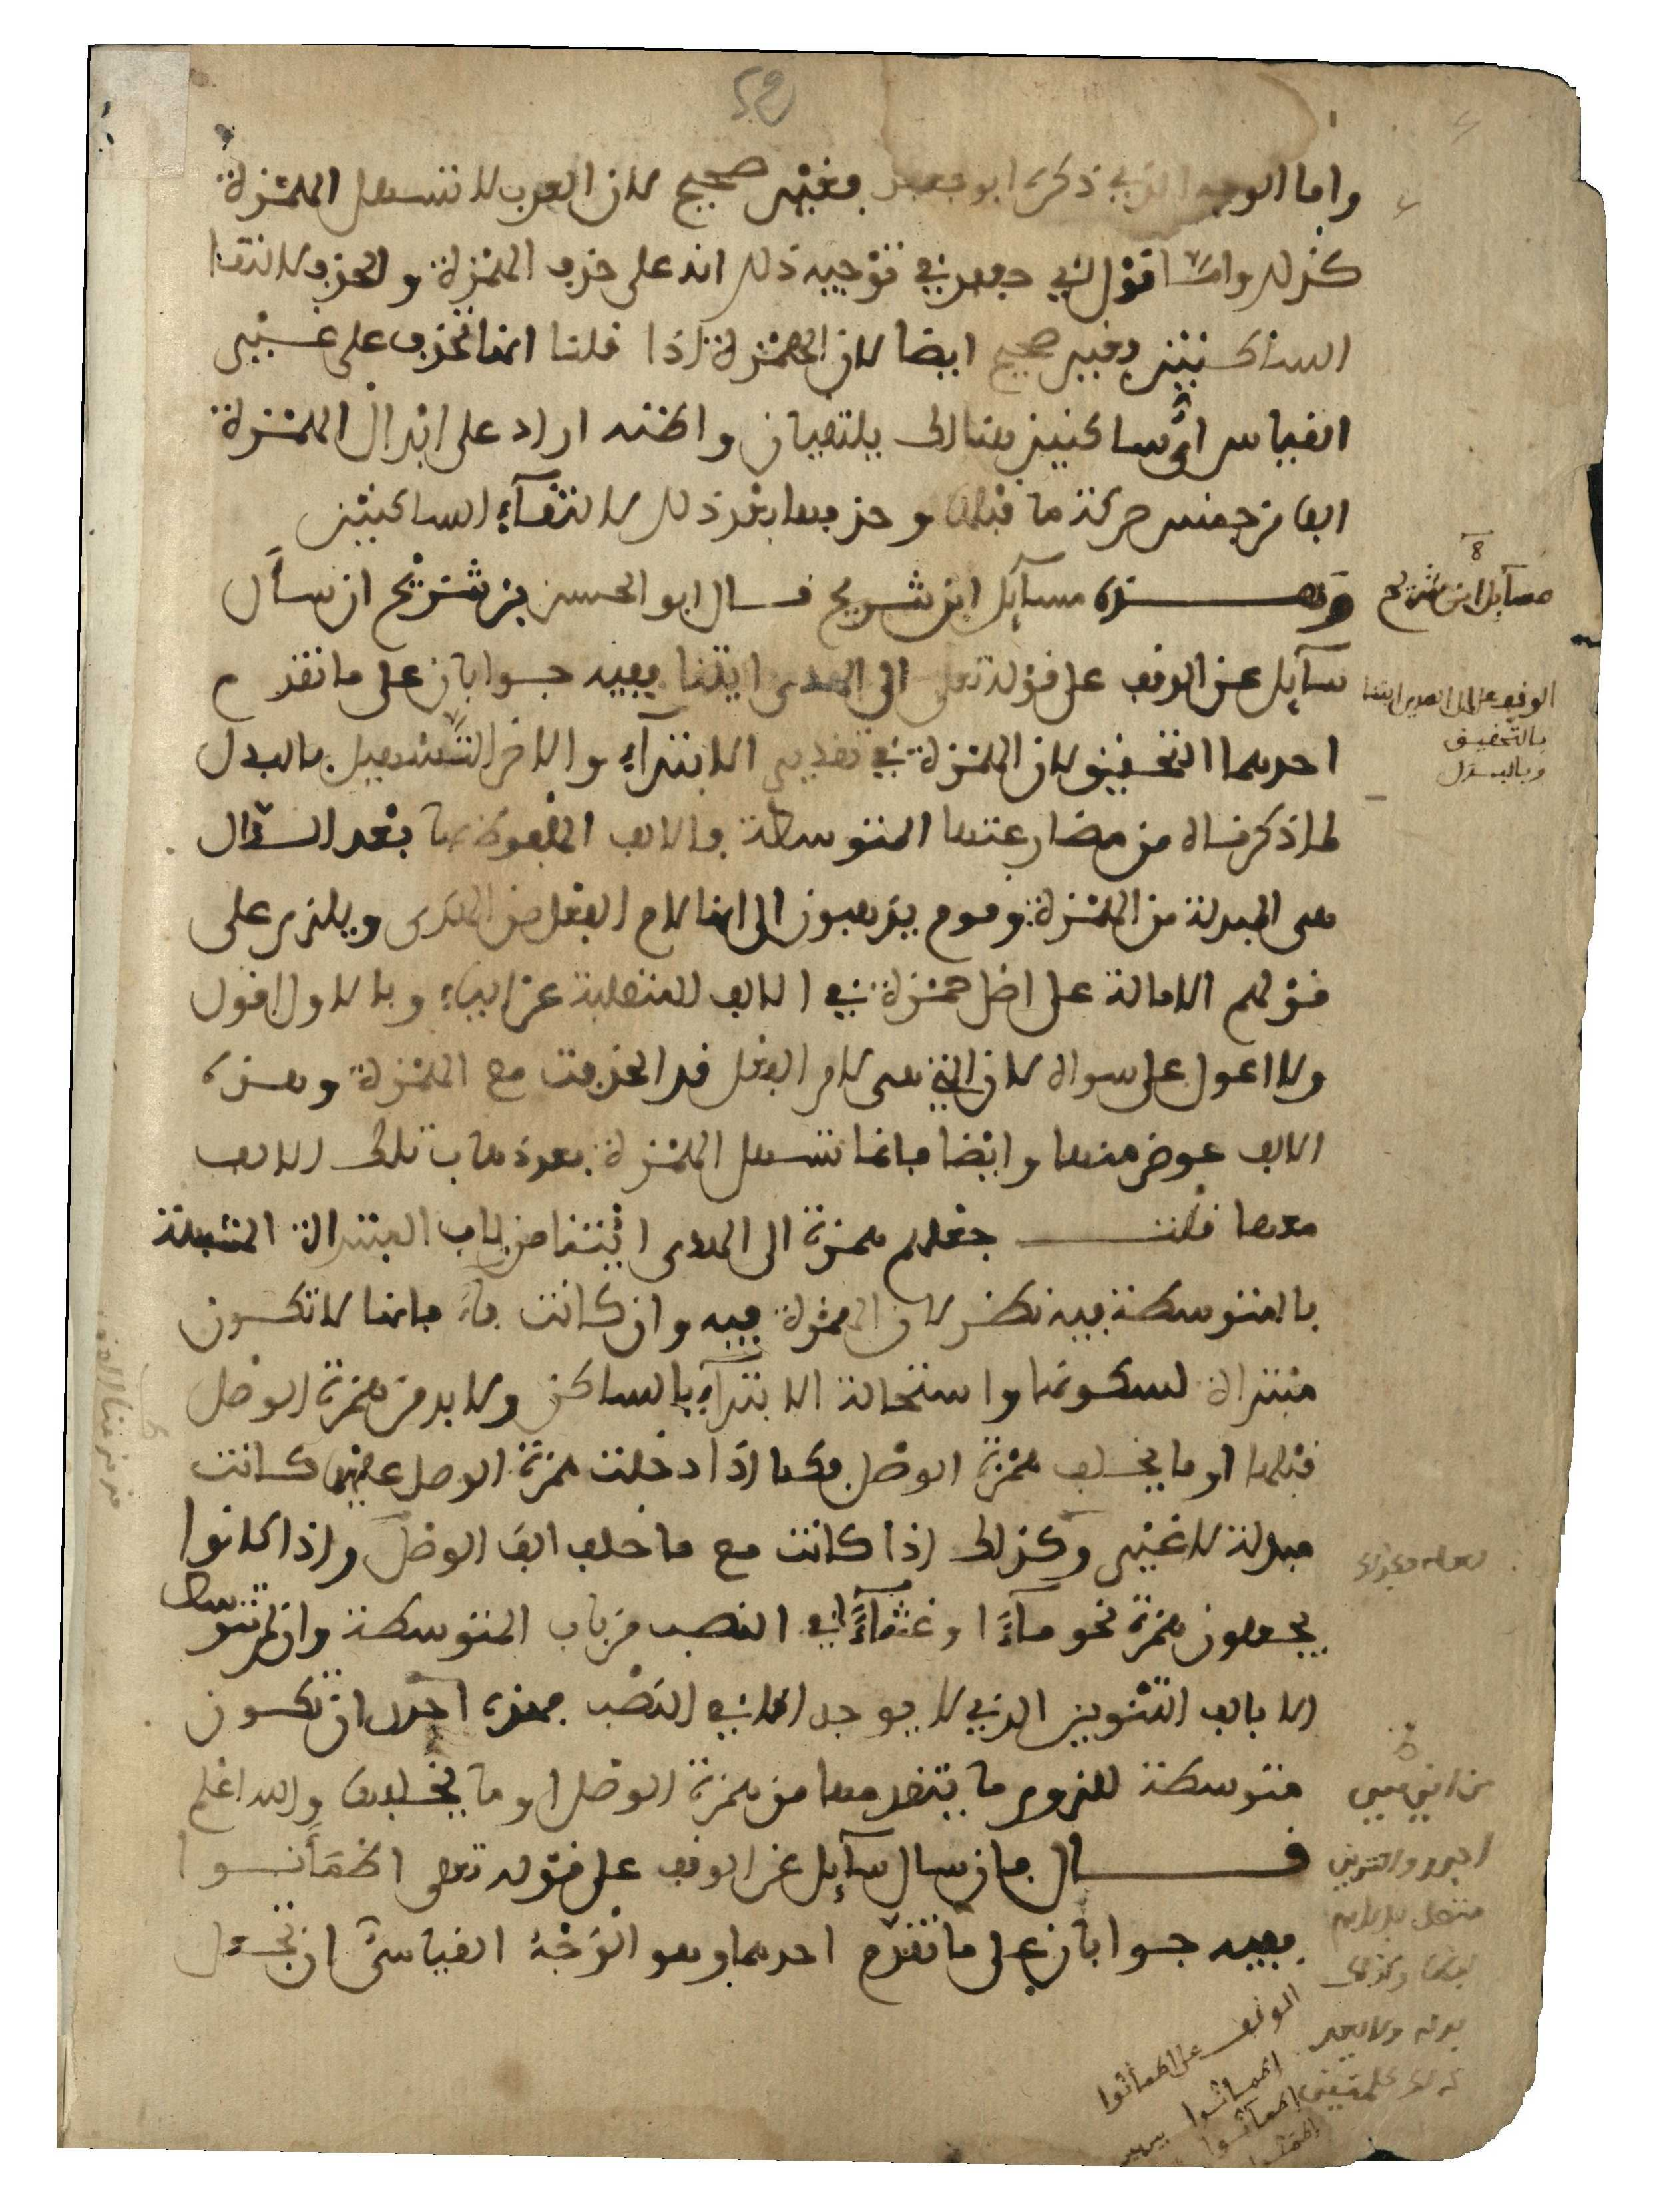 واما الوجه الذي ذكره ابو جعفر فغير صحيح لان العرب لا تسهل الهمزة
كذلك واما قول ابي جعفر في توجيه ذلك انه على حذف الهمزة والحذف لالتقا
الساكنين فغير صحيح ايضا لان الهمزة اذا قلنا انما تحذف على غير
القياس اي ساكنين هنالك يلتقيان ولكنه اراد على ابدال الهمزة
الفا من جنس حركة ما قبلها وحذفها بعد ذلك لالتقآء الساكنين
وهذه مسآئل ابن شريح قال ابو الحسن بن شريح ان سأل
سآئل عن الوقف على قوله تعلى الى الهدى ايتنا ففيه جوابان على ما تقدم
احدهما التحقيق لان الهمزة في تقدير الابتدآء والاخر التسهيل بالبدل
لما ذكرناه من مضارعتها المتوسطة فالالف الملفوظ بها بعد الدال
هي المبدلة من الهمزة وقوم يذهبون الى انها لام الفعل من الهدى ويلزم على
قولهم الامالة على اصل حمزة في الالف المنقلبة عن اليآء وبالاول اقول
ولا اعول على سواه لان التي هي لام الفعل قد انحذفت مع الهمزة وهذه
الالف عوض منها وايضا فانما تسهل الهمزة بعد ذهاب تلك الالف
معها قلت جعلهم همزة الى الهدى ايتنا من باب المبتداة المشبهة
بالمتوسطة فيه نظر لان الهمزة فيه وان كانت فآء فانها لا تكون
مبتداة لسكونها واستحالة الابتدآء بالساكن ولا بد من همزة الوصل
قبلها او ما يخلف همزة الوصل فكما اذا دخلت همزة الوصل عليها كانت
مبدلة لا غير وكذلك اذا كانت مع ما خلف الف الوصل واذا كانوا
يجعلون همزة نحو مآءً او غثآءً في النصب من باب المتوسطة وان لم تتوسط
الا بالف التنوين الذي لا يوجد الا في النصب فهذه احرى ان تكون
متوسطة للزوم ما يتقدمها من همزة الوصل او ما يخلفها والله اعلم
قال فان سال سآئل عن الوقف على قوله تعلى اطمأنوا
ففيه جوابان على ما تقدم احدهما وهو الوجه القياسي ان تجعل
مسآئل ابن شريح
الوقف على الى الهدى ايتنا
بالتحقيق
وبالبدل
الوقف على اطمأنوا
اطمانوا
اطمأنوا